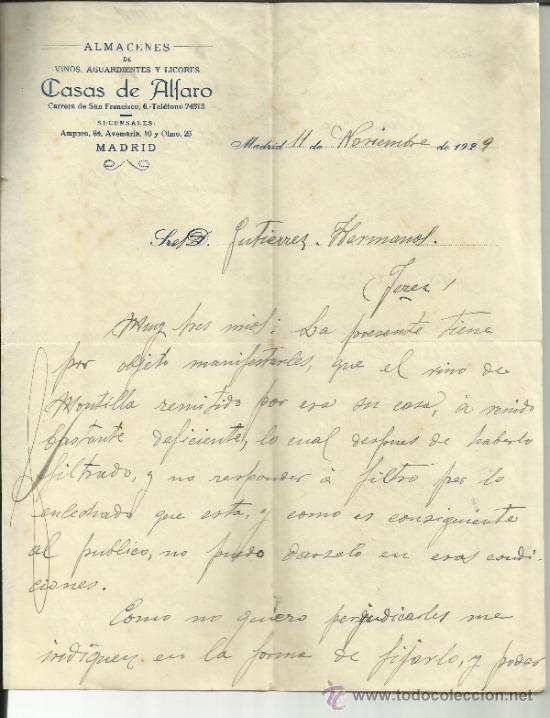 ALMACENES
DE
VINOS, AGUARDIENTES Y LICORES
Casas de Alfaro
Carrera de San Francisco, 6.-Teléfono 74513
SUCURSALES:
Amparo, 84, Avemaría, 10 y Olmo, 25
MADRID
Madrid 11 de Noviembre de 1929
Sres D. Gutierrez Hermanos.
(Jerez)
Muy sres mios: La presente tiene
por objeto manifestarles, que el vino de
Montilla remitido por esa su casa, á venido
bastante deficiente, lo cual despues de haberlo
filtrado, y no responder á filtro por lo
enlechado que esta, y como es consiguiente
al publico, no puedo darselo en esas condi-
ciones.
Como no quiero perjudicarles me
indiquen en la forma de fijarlo, y poder
todocoleccion.net